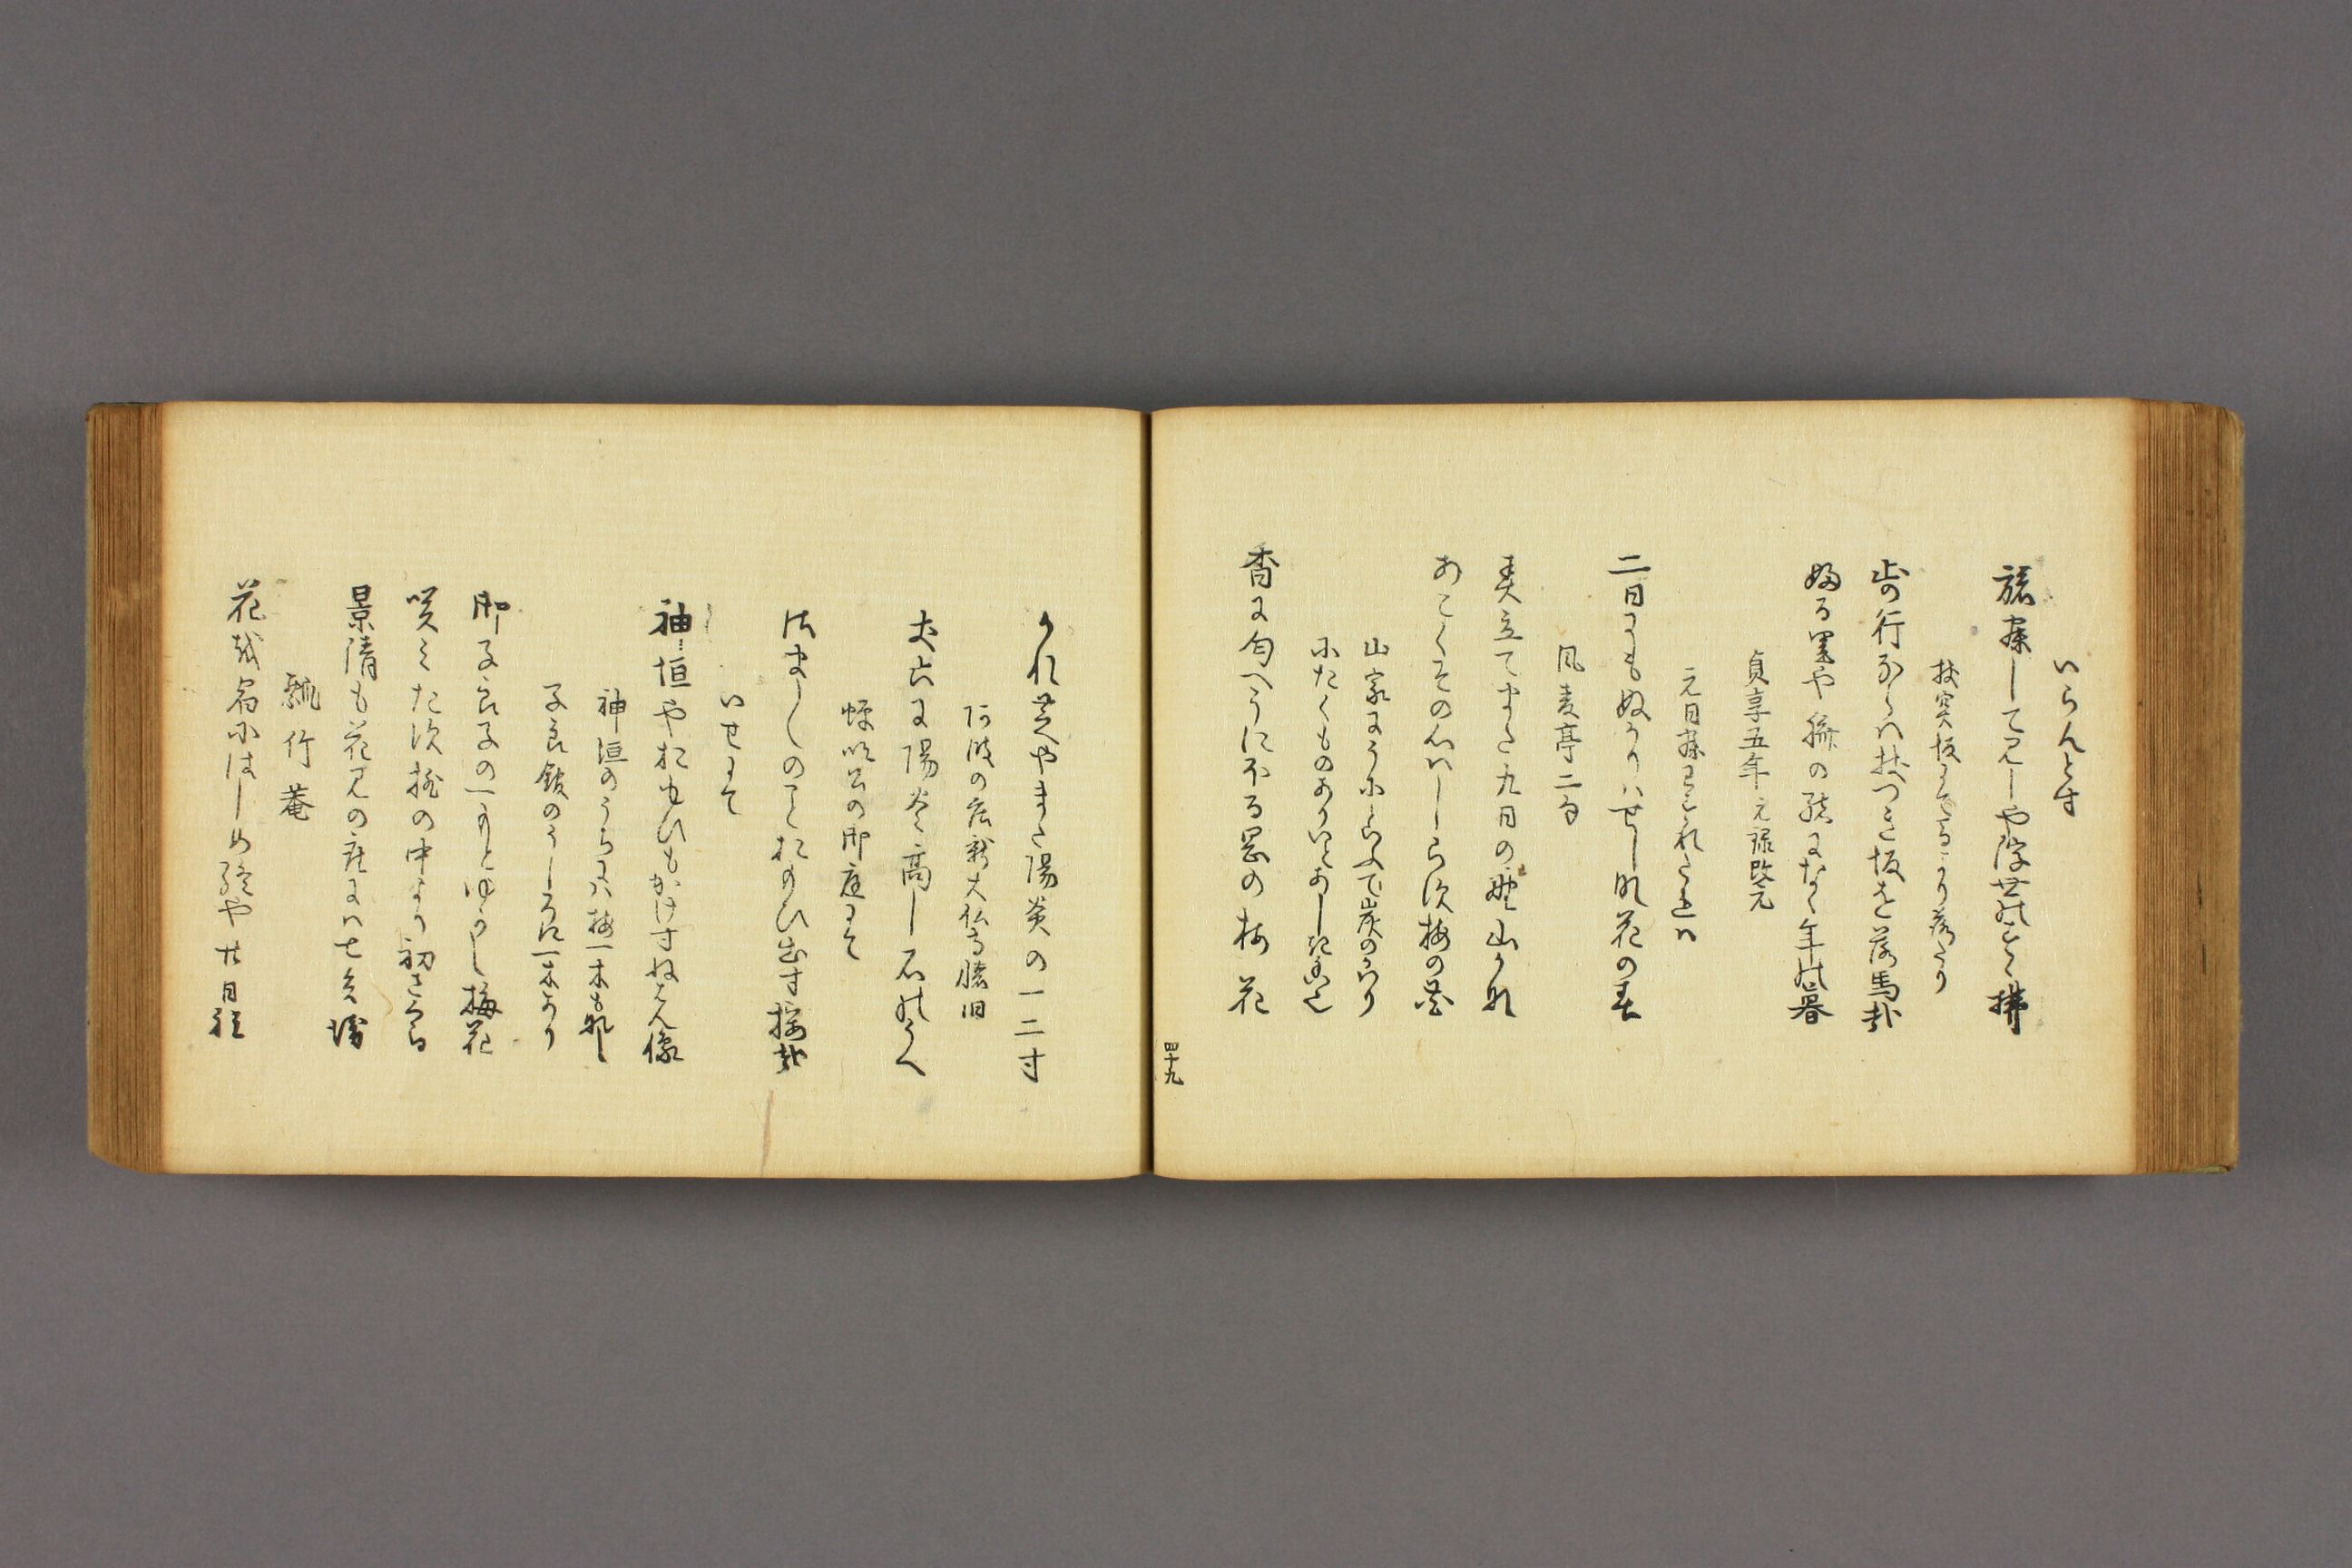 いらんとす
旅寐して見しや浮世のすゝ拂
杖突坂にて馬より落たり
歩行ならハ杖つき坂を落馬哉
婦る里や臍の緒になく年の暮
貞享五年元禄改元
元日寐わすれたれハ
二日にもぬかりハせしな花の春
風麦亭二句
春立てまた九日の野山かな
あこくその心ハしらす梅の花
山家
香に匂へうにほる岡の梅花
四十九
かれ芝やまた陽炎の一二寸
阿波の庄新大仏寺
丈六に陽炎高し石のうへ
蝉吟公の御庭にて
はまくのことおもひ出す桜哉
いせにて
神垣やおもひもかけすねはん像
神垣のうちにハ梅一木もなし
子良館のうしろに一木あり
御子良子の一もとゆかし梅花
咲みたす桃の中より初さくら
景清も花見の座にハ七兵衛
瓢竹菴
花を宿にはしめ終や廿日程